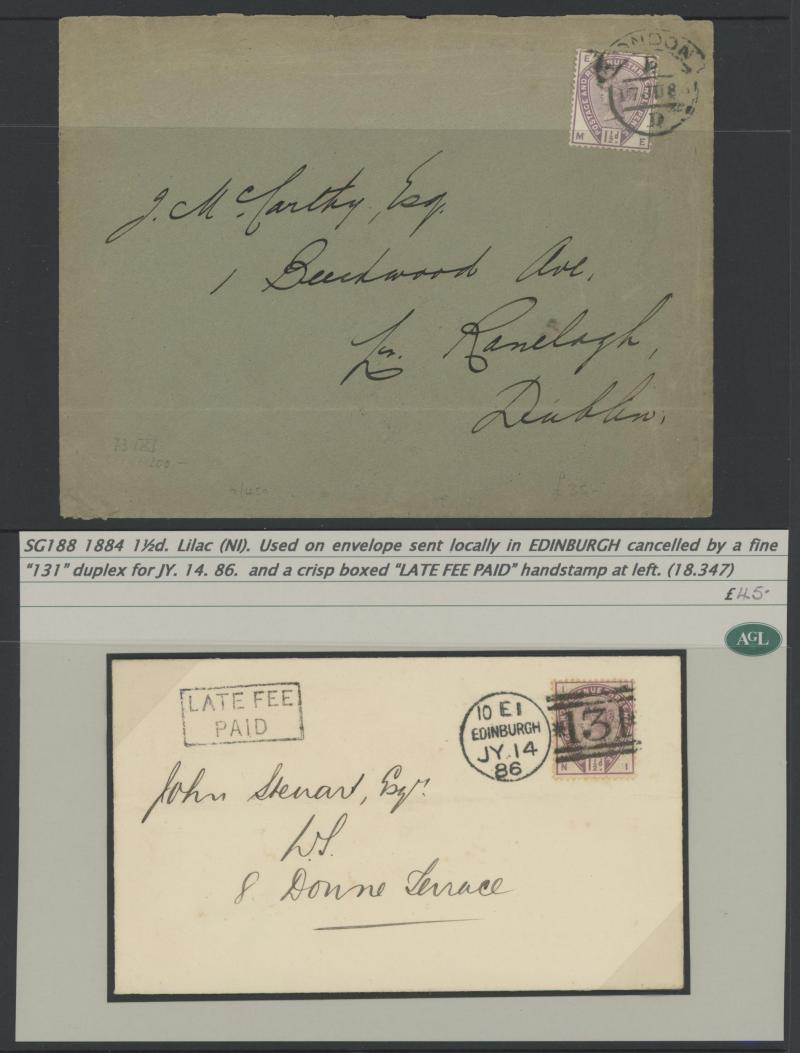 LONDON
17 JU 8
D
E
POSTAGE AND REVENUE
M 1½d E
J. McCarthy, Esq.
1 Beechwood Ave.
Ranelagh,
Dublin.
£35-
SG188 1884 1½d. Lilac (NI). Used on envelope sent locally in EDINBURGH cancelled by a fine
"131" duplex for JY. 14. 86. and a crisp boxed "LATE FEE PAID" handstamp at left. (18.347)
£45-
AGL
LATE FEE
PAID
10 E 1
EDINBURGH
JY. 14
86
131
I
N 1½d I
John Stewart, Esqr.
W.S.
8 Doune Terrace